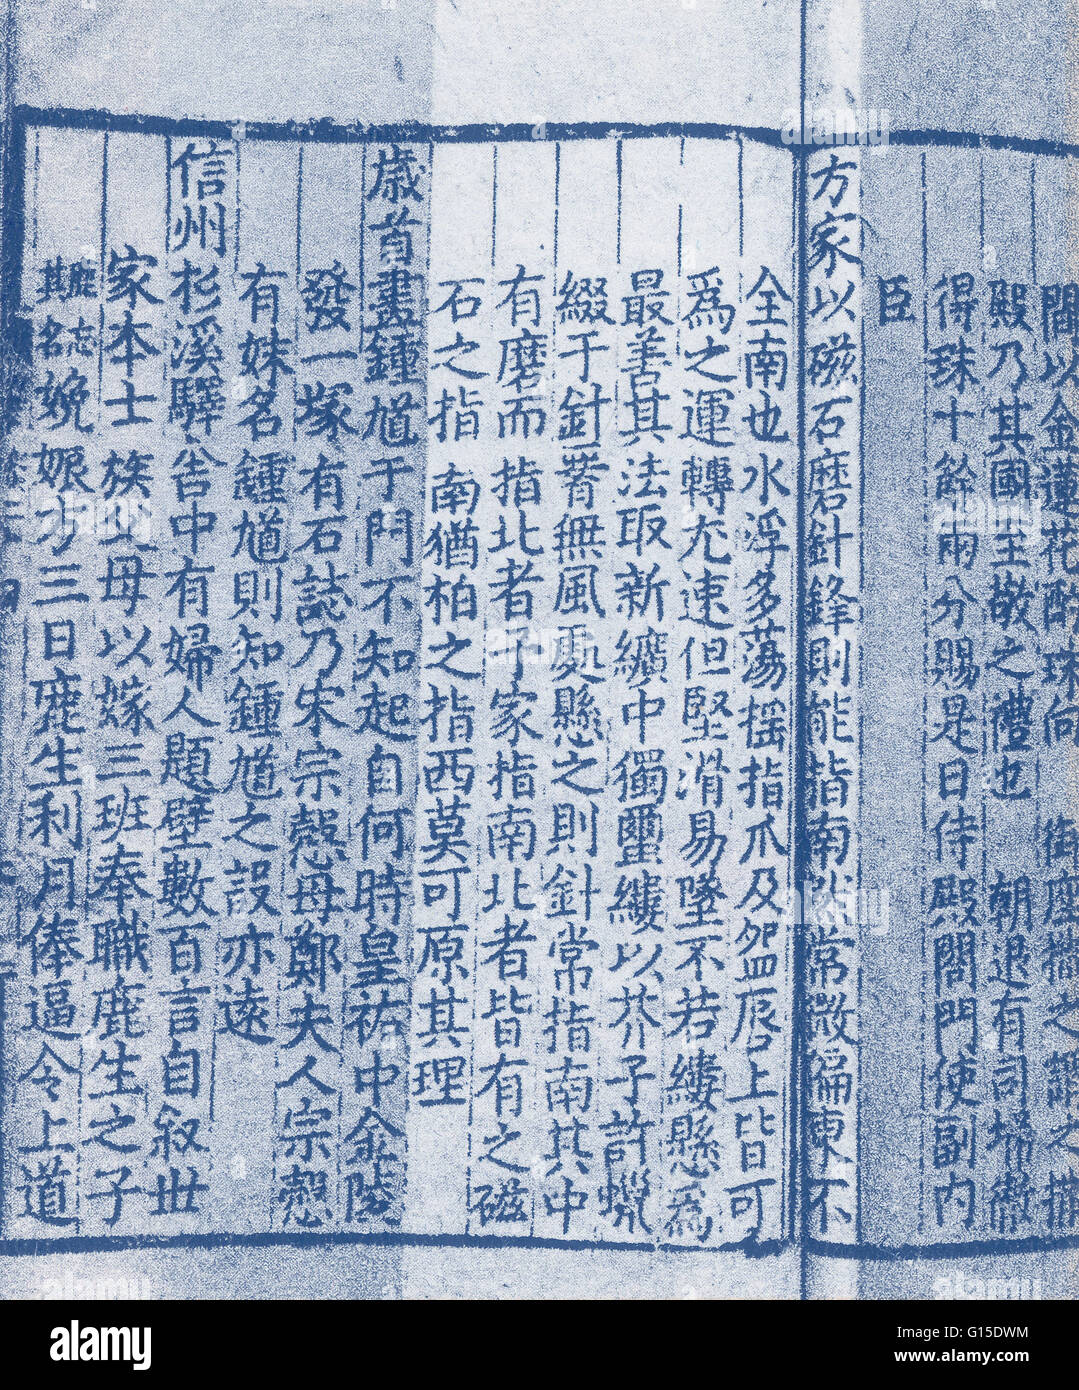 閻以金蓮花酌珠向 御座撒之謂之撒
殿乃其國至敬之禮也 朝退有司掃徹
得珠十餘兩分賜是日侍殿閤門使副内
臣
方家以磁石磨針鋒則能指南然常微偏東不
全南也水浮多蕩揺指爪及盌脣上皆可
爲之運轉尤速但堅滑易墜不若縷懸爲
最善其法取新纊中獨繭縷以芥子許蠟
綴于針腰無風處懸之則針常指南其中
有磨而指北者予家指南北者皆有之磁
石之指南猶柏之指西莫可原其理
歳首畫鍾馗于門不知起自何時皇祐中金陵
發一塚有石誌乃宋宗愨母鄭夫人宗愨
有妹名鍾馗則知鍾馗之設亦遠
信州杉溪驛舎中有婦人題壁數百言自叙世
家本士族父母以嫁三班奉職鹿生之子
鹿忘其名娩娠方三日鹿生利月俸逼令上道
alamy
Image ID: G15DWM
www.alamy.com